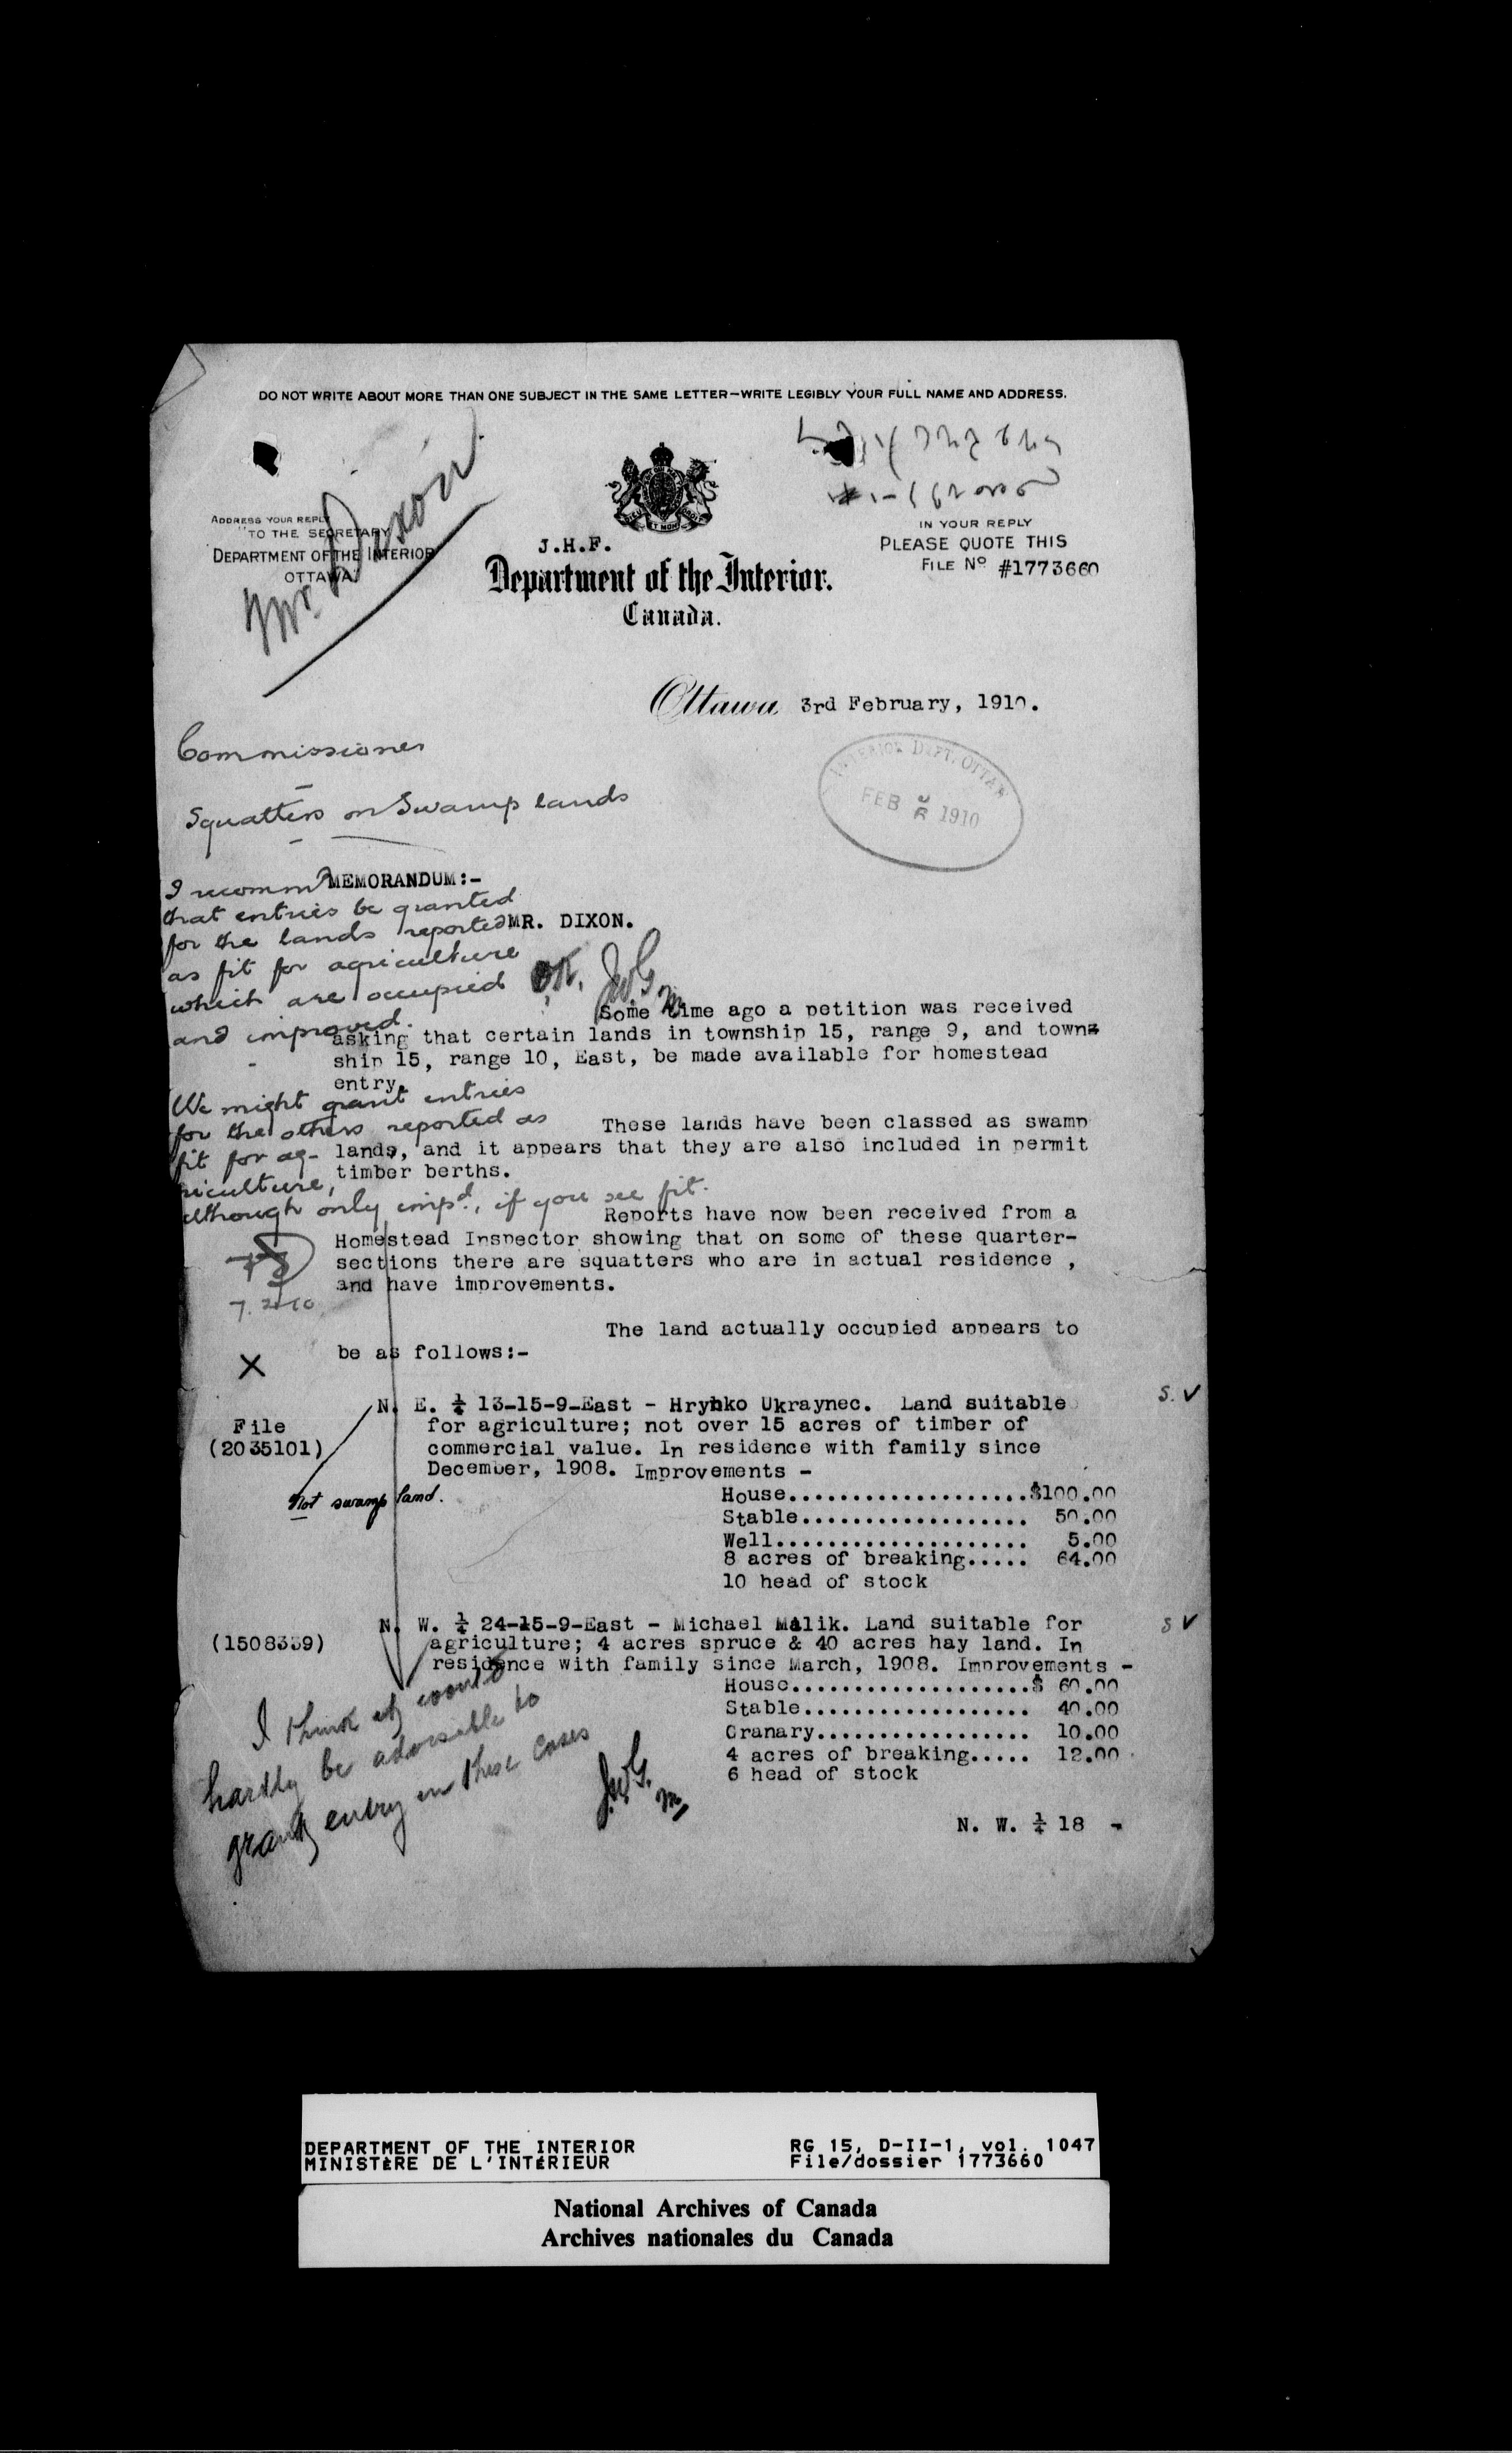 DO NOT WRITE ABOUT MORE THAN ONE SUBJECT IN THE SAME LETTER—WRITE LEGIBLY YOUR FULL NAME AND ADDRESS.
Mr. Dixon
ADDRESS YOUR REPLY
"TO THE SECRETARY
DEPARTMENT OF THE INTERIOR
OTTAWA
IN YOUR REPLY
PLEASE QUOTE THIS
FILE No #1773660
J.H.F.
Department of the Interior.
Canada.
Ottawa 3rd February, 1910.
Commissioner
INTERIOR DEPT. OTTAWA
FEB 1910
Squatters on Swamp lands
MEMORANDUM:-
MR. DIXON.
I recommd
that entries be granted
for the lands reported
as fit for agriculture
which are occupied
and improved.
OK. J.W.G.
m
Some time ago a petition was received
asking that certain lands in township 15, range 9, and town-
ship 15, range 10, East, be made available for homestead
entry.
We might grant entries
for the others reported as
fit for ag-
riculture,
although only impd., if you see fit.
These lands have been classed as swamp
lands, and it appears that they are also included in permit
timber berths.
Reports have now been received from a
Homestead Inspector showing that on some of these quarter-
sections there are squatters who are in actual residence ,
and have improvements.
7.2.10
The land actually occupied appears to
be as follows:-
X
N. E. ¼ 13-15-9-East - Hrynko Ukraynec. Land suitable S. ✓
for agriculture; not over 15 acres of timber of
commercial value. In residence with family since
December, 1908. Improvements -
File
(2035101)
Not swamp land.
House...................$100.00
Stable.................. 50.00
Well.................... 5.00
8 acres of breaking..... 64.00
10 head of stock
N. W. ¼ 24-15-9-East - Michael Malik. Land suitable for S ✓
(1508359)
agriculture; 4 acres spruce & 40 acres hay land. In
residence with family since March, 1908. Improvements -
House...................$ 60.00
Stable.................. 40.00
Granary................. 10.00
4 acres of breaking..... 12.00
6 head of stock
I think it would
hardly be advisable to
grant entry in these cases
J.W.G.
m
N. W. ¼ 18 -
DEPARTMENT OF THE INTERIOR
MINISTÈRE DE L'INTÉRIEUR
RG 15, D-II-1, vol. 1047
File/dossier 1773660
National Archives of Canada
Archives nationales du Canada